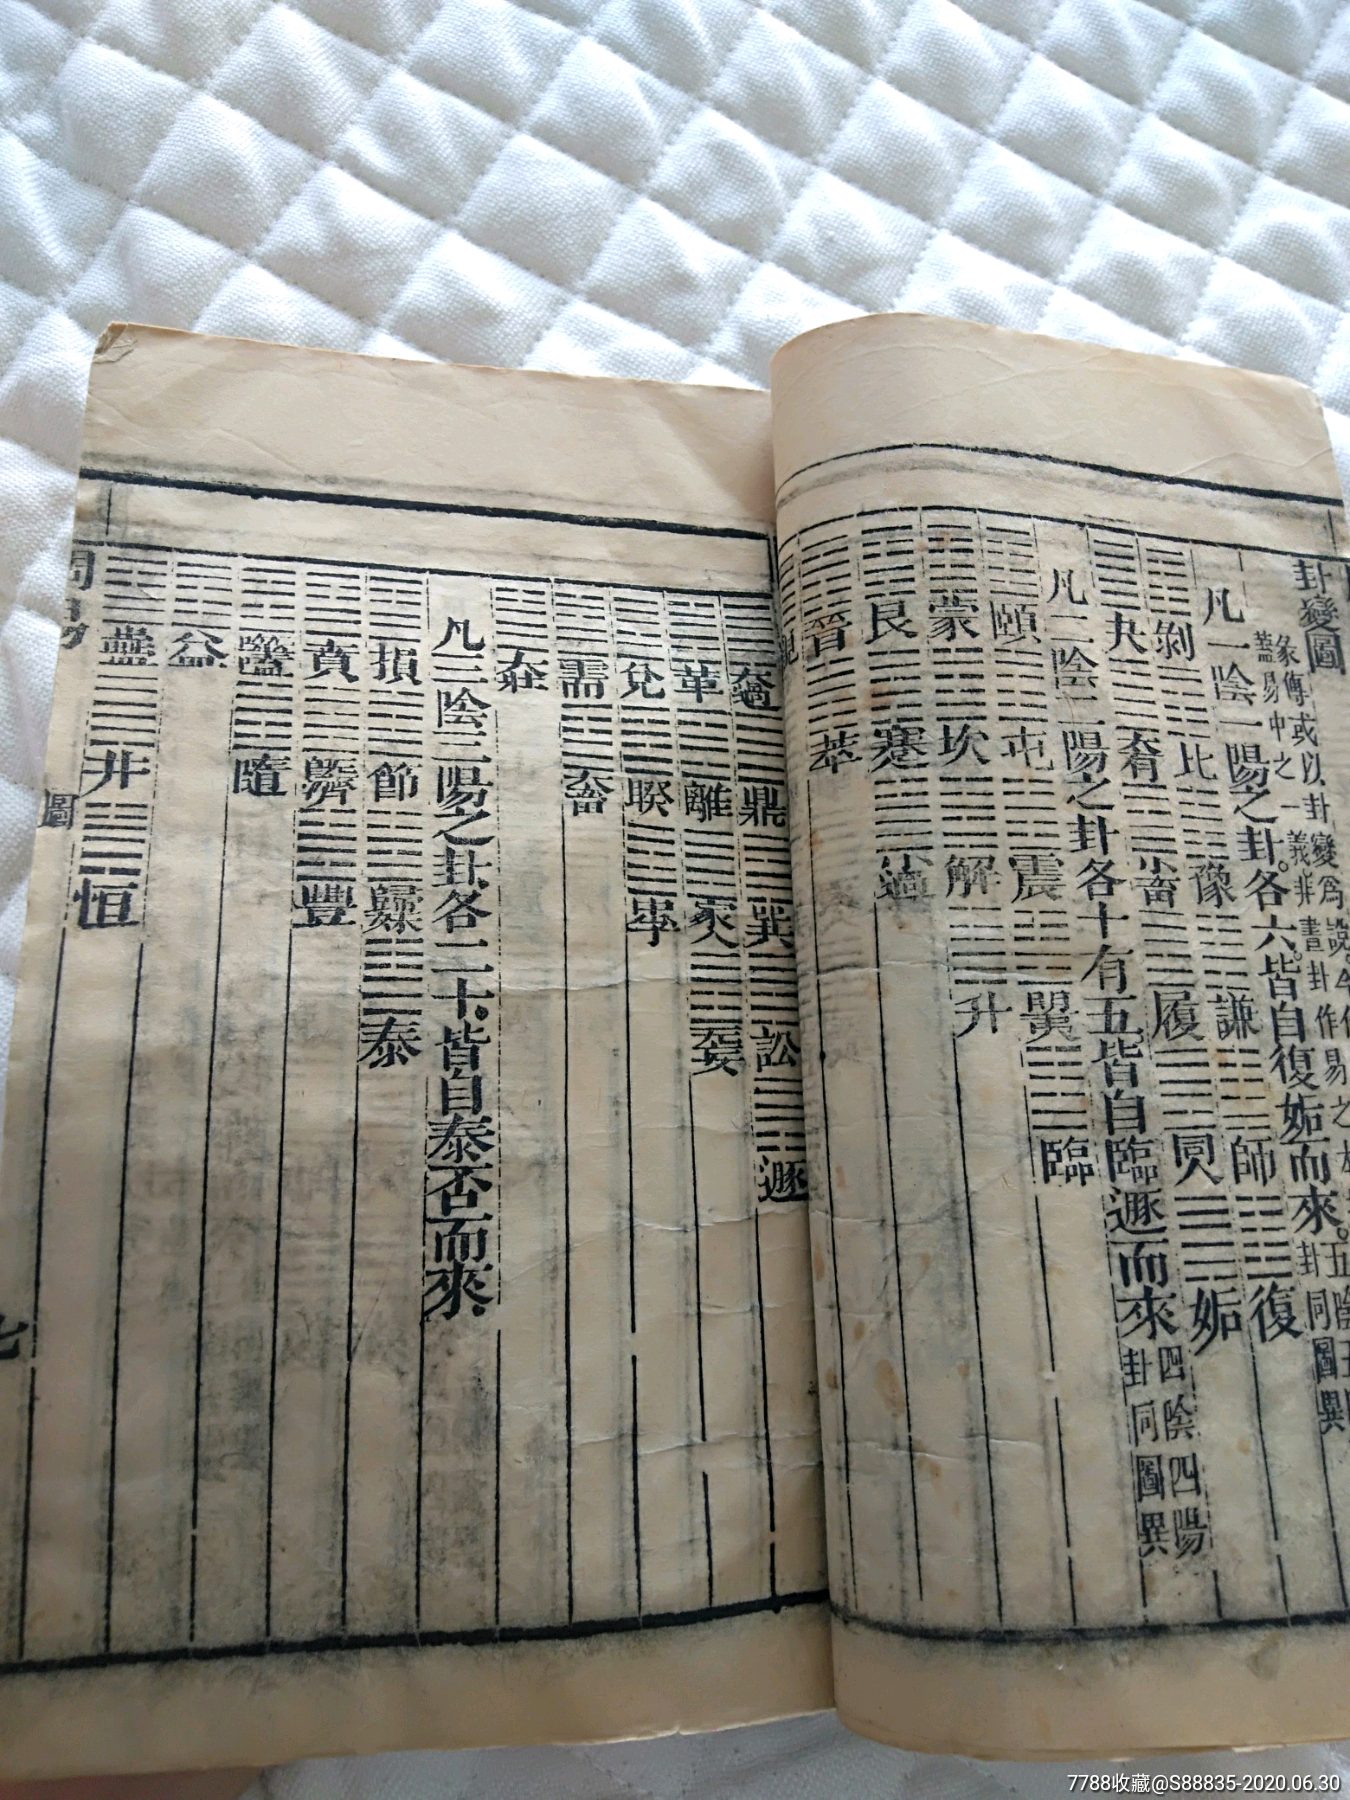 卦變圖
彖傳或以卦變爲說。今作
蓋易中之一義非畫卦作易之
凡一陰一陽之卦。各六。皆自復姤而來。
五陰五
卦同圖異
剝 比 豫 謙 師 復
夬 大有 小畜 履 同人 姤
凡二陰二陽之卦各十有五皆自臨遯而來
四陰四陽
卦同圖異
頤 屯 震 明夷 臨
蒙 坎 解 升
艮 蹇 小過
晉 萃
觀
大過 鼎 巽 訟 遯
革 離 家人 无妄
兌 睽 中孚
需 大畜
大壯
凡三陰三陽之卦各二十。皆自泰否而來。
損 節 歸妹 泰
賁 既濟 豐
噬嗑 隨
益
蠱 井 恒
周易 圖 七
7788收藏@S88835-2020.06.30